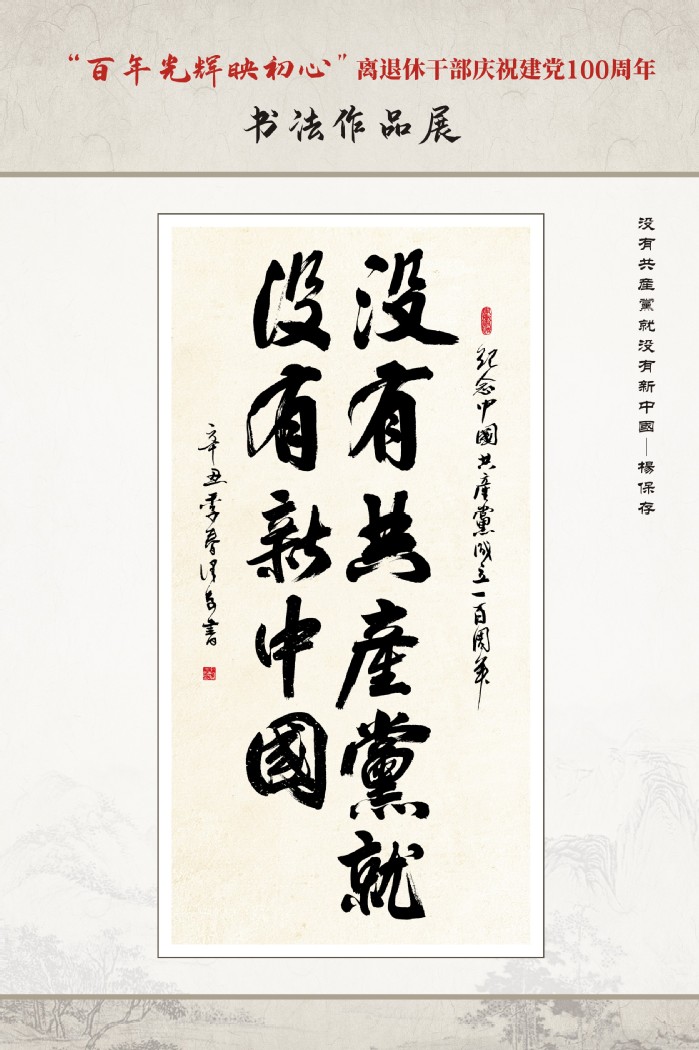 “百年光辉映初心”离退休干部庆祝建党100周年
书法作品展
没有共産黨就没有新中國—楊保存
紀念中國共産黨成立一百周年
没有共産黨就
没有新中國
辛丑季春保存書